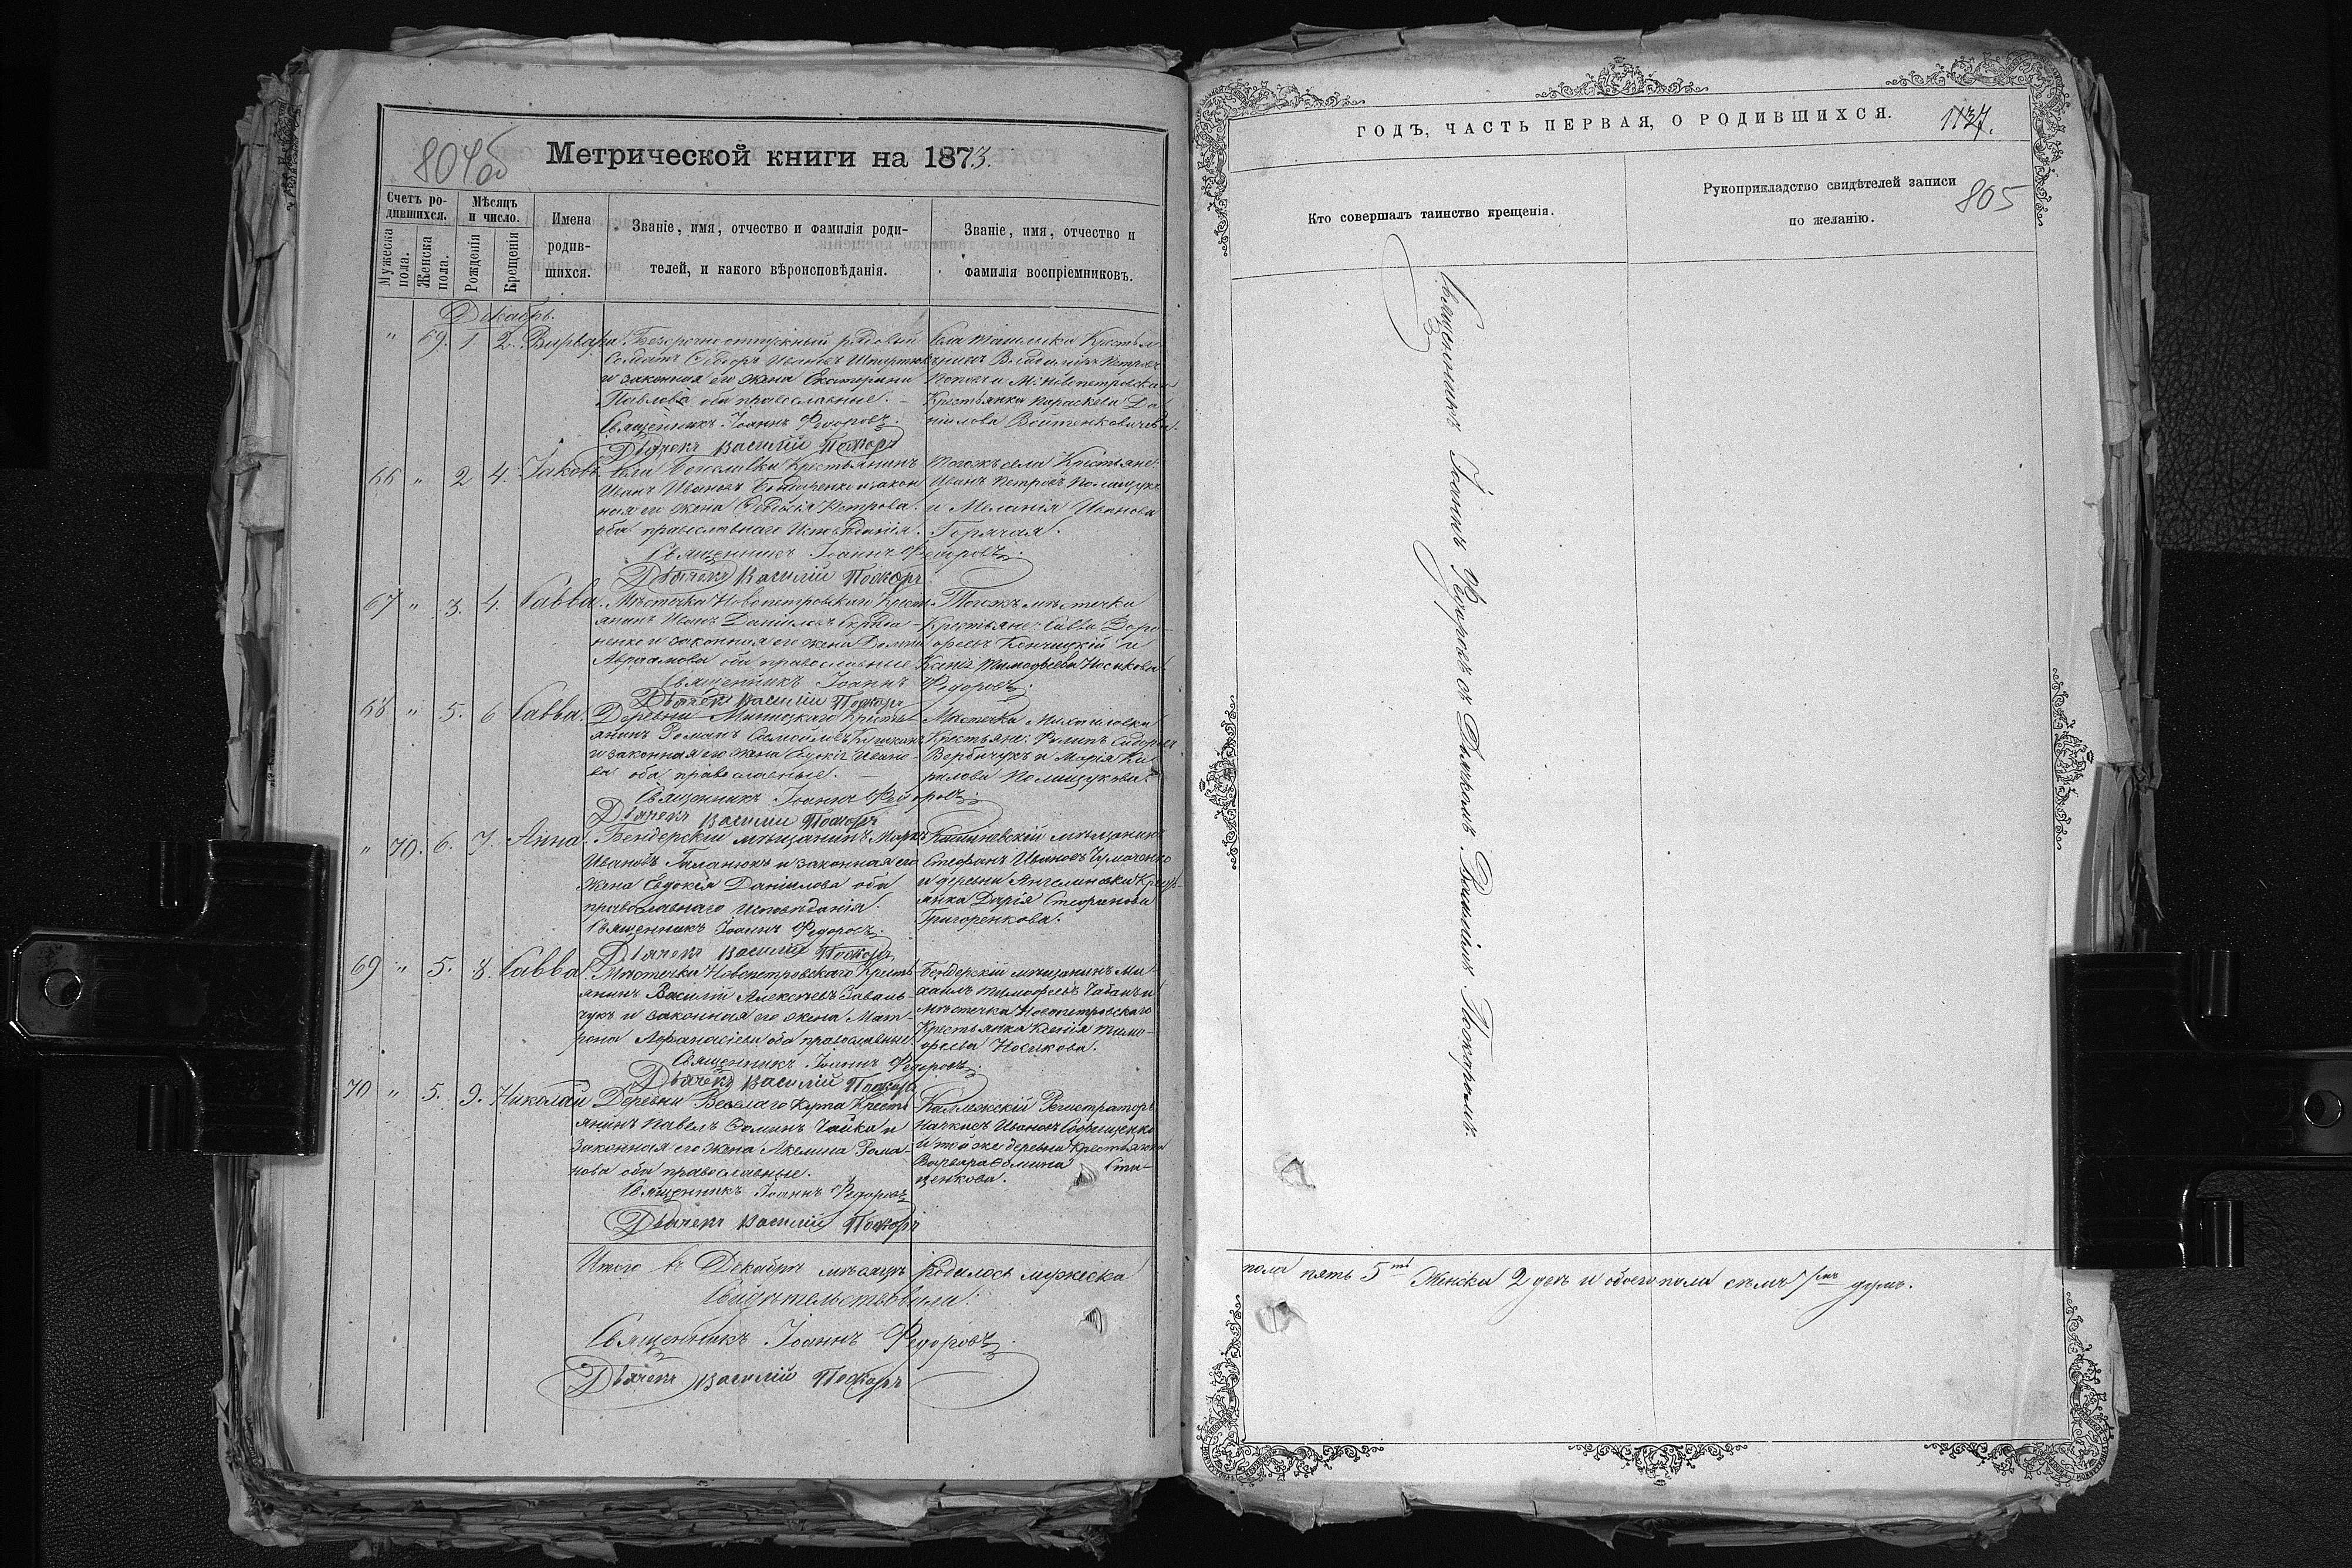 804об
Метрической книги на 1873.
Счетъ ро-
дившихся.
Мужеска
пола.
Женска
пола.
Мѣсяцъ
и число.
Рожденія
Крещенія
Имена
родив-
шихся.
Званіе, имя, отчество и фамилія роди-
телей, и какого вѣроисповѣданія.
Званіе, имя, отчество и
фамилія воспріемниковъ.
Декабрь.
" 69. 1 2. Варвара
Безсрочно отпускный рядовый
Солдатъ Ѳеодоръ Ивановъ
и законная его жена Екатерина
Павлова оба православные.
Священникъ Іоаннъ Федоровъ.
Дьячекъ Василій
Села Крестья-
Владимиръ Петровъ
Поповъ и М: Новопетровска
Крестьянка Параскева Да
нилова
66 " 2 4. Іаковъ.
Села Крестьянинъ
Иванъ Ивановъ Бондаренко и закон
ная его жена Петрова
оба православнаго Исповѣданія.
Священникъ Іоаннъ Федоровъ.
Дьячекъ Василій
Тогожъ села Крестьяне:
Иванъ Петровъ Полищукъ
и Меланія Иванова
Горячая.
67 " 3. 4. Савва.
Мѣстечка Новопетровскаго Крест
янинъ Иванъ Даниловъ
ненко и законная его жена Домна
Авраамова оба православные
Священникъ Іоаннъ Федоровъ.
Дьячекъ Василій
Тогожъ мѣстечка
Крестьяне: Савва Доро-
ѳеевъ и
Тимофеева Носикова.
68 " 5. 6 Савва.
Деревни Крестья
янинъ Романъ Самойловъ
и законная его жена Евдокія Ивано-
ва оба православные.
Священникъ Іоаннъ Федоровъ.
Дьячекъ Василій
Мѣстечка Михайловки
Крестьяне: Филипъ Сидоровъ
Вербичукъ и Марія Ки
рилова Полищукова.
" 70. 6. 7. Анна.
Бендерскій мѣщанинъ Маркъ
Ивановъ Галанюкъ и законная его
жена Евдокія Даніилова оба
православнаго исповѣданія.
Священникъ Іоаннъ Федоровъ.
Дьячекъ Василій
Кишиневскій мѣщанинъ
Стефанъ Ивановъ Чумаченко
и деревни Ангелиновки Крестья-
янка Дарія Стефанова
Григоренкова.
69 " 5. 8. Савва.
Мѣстечка Новопетровскаго Кресть
янинъ Василій Алексѣевъ Заваль
чукъ и законная его жена Мат-
рона Афанасіева оба православные
Священникъ Іоаннъ Федоровъ.
Дьячекъ Василій
Бендерскій мѣщанинъ Ми-
хаилъ Тимофеевъ Чабанъ и
мѣстечка Новопетровскаго
Крестьянка Ксенія Тимо-
феева Носикова.
70 " 5. 9. Николай
Деревни Веселаго Кута Кресть
янинъ Павелъ Чайка и
законная его жена Акелина Рома-
нова оба православные.
Священникъ Іоаннъ Федоровъ
Дьячекъ Василій
Коллежскій Регистраторъ
Ивановъ
и той же деревни Крестьянка
Варвара Сти-
ценкова.
Итого въ Декабрѣ мѣсяцѣ родилось мужеска
Свидѣтельствовали:
Священникъ Іоаннъ Федоровъ.
Дьячекъ Василій
ГОДЪ, ЧАСТЬ ПЕРВАЯ, О РОДИВШИХСЯ.
805
Кто совершалъ таинство крещенія.
Рукоприкладство свидѣтелей записи
по желанію.
Священникъ Іоаннъ Федоровъ съ Дьячкомъ Василіемъ
пола пять 5 Женска 2 двѣ и обоего пола семь душъ.